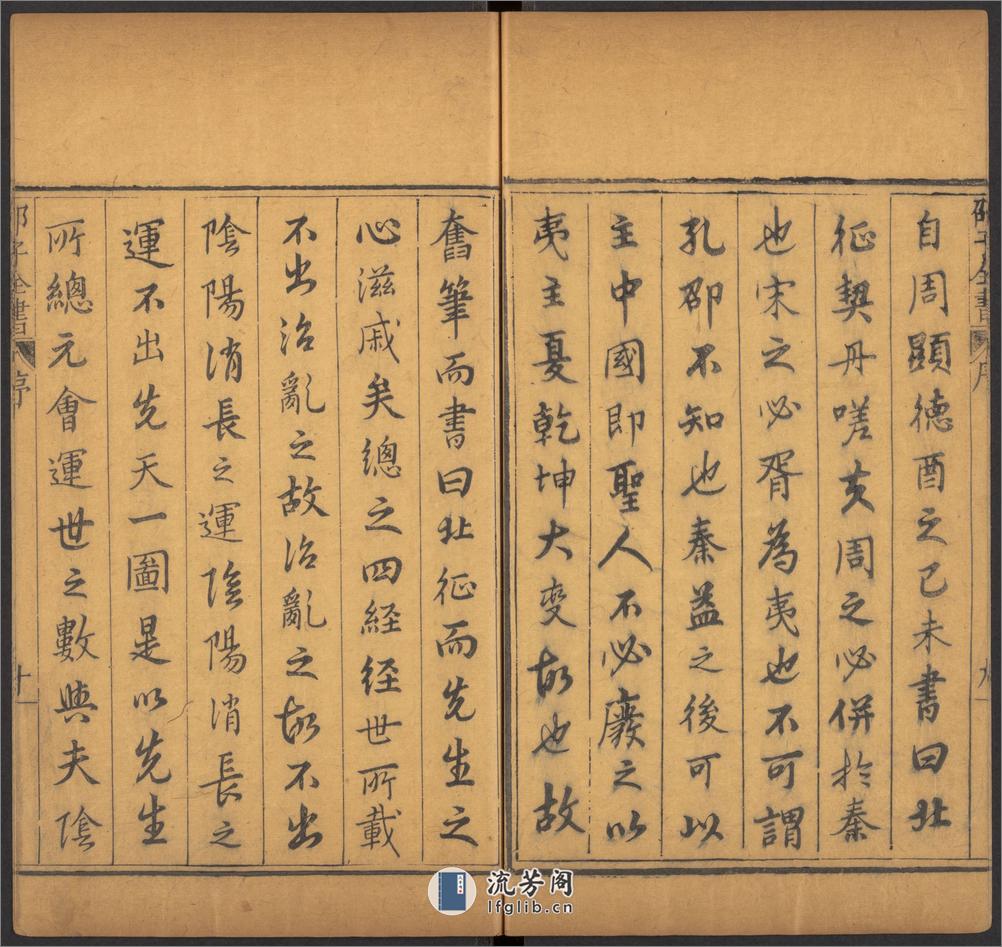 自周顯德酉之己未書曰北
征契丹嗟亥周之必併扵秦
也宋之必胥為夷也不可謂
孔邵不知也秦益之後可以
主中國即聖人不必廢之以
夷主夏乾坤大变故也故
奮筆而書曰北征而先生之
心滋戚矣總之四経経世所載
不出治亂之故治亂之故不出
陰陽消長之運陰陽消長之
運不出先天一圖是以先生
所總元會運世之數與夫陰
邵子全書
序
十一
流芳阁
lfglib.cn